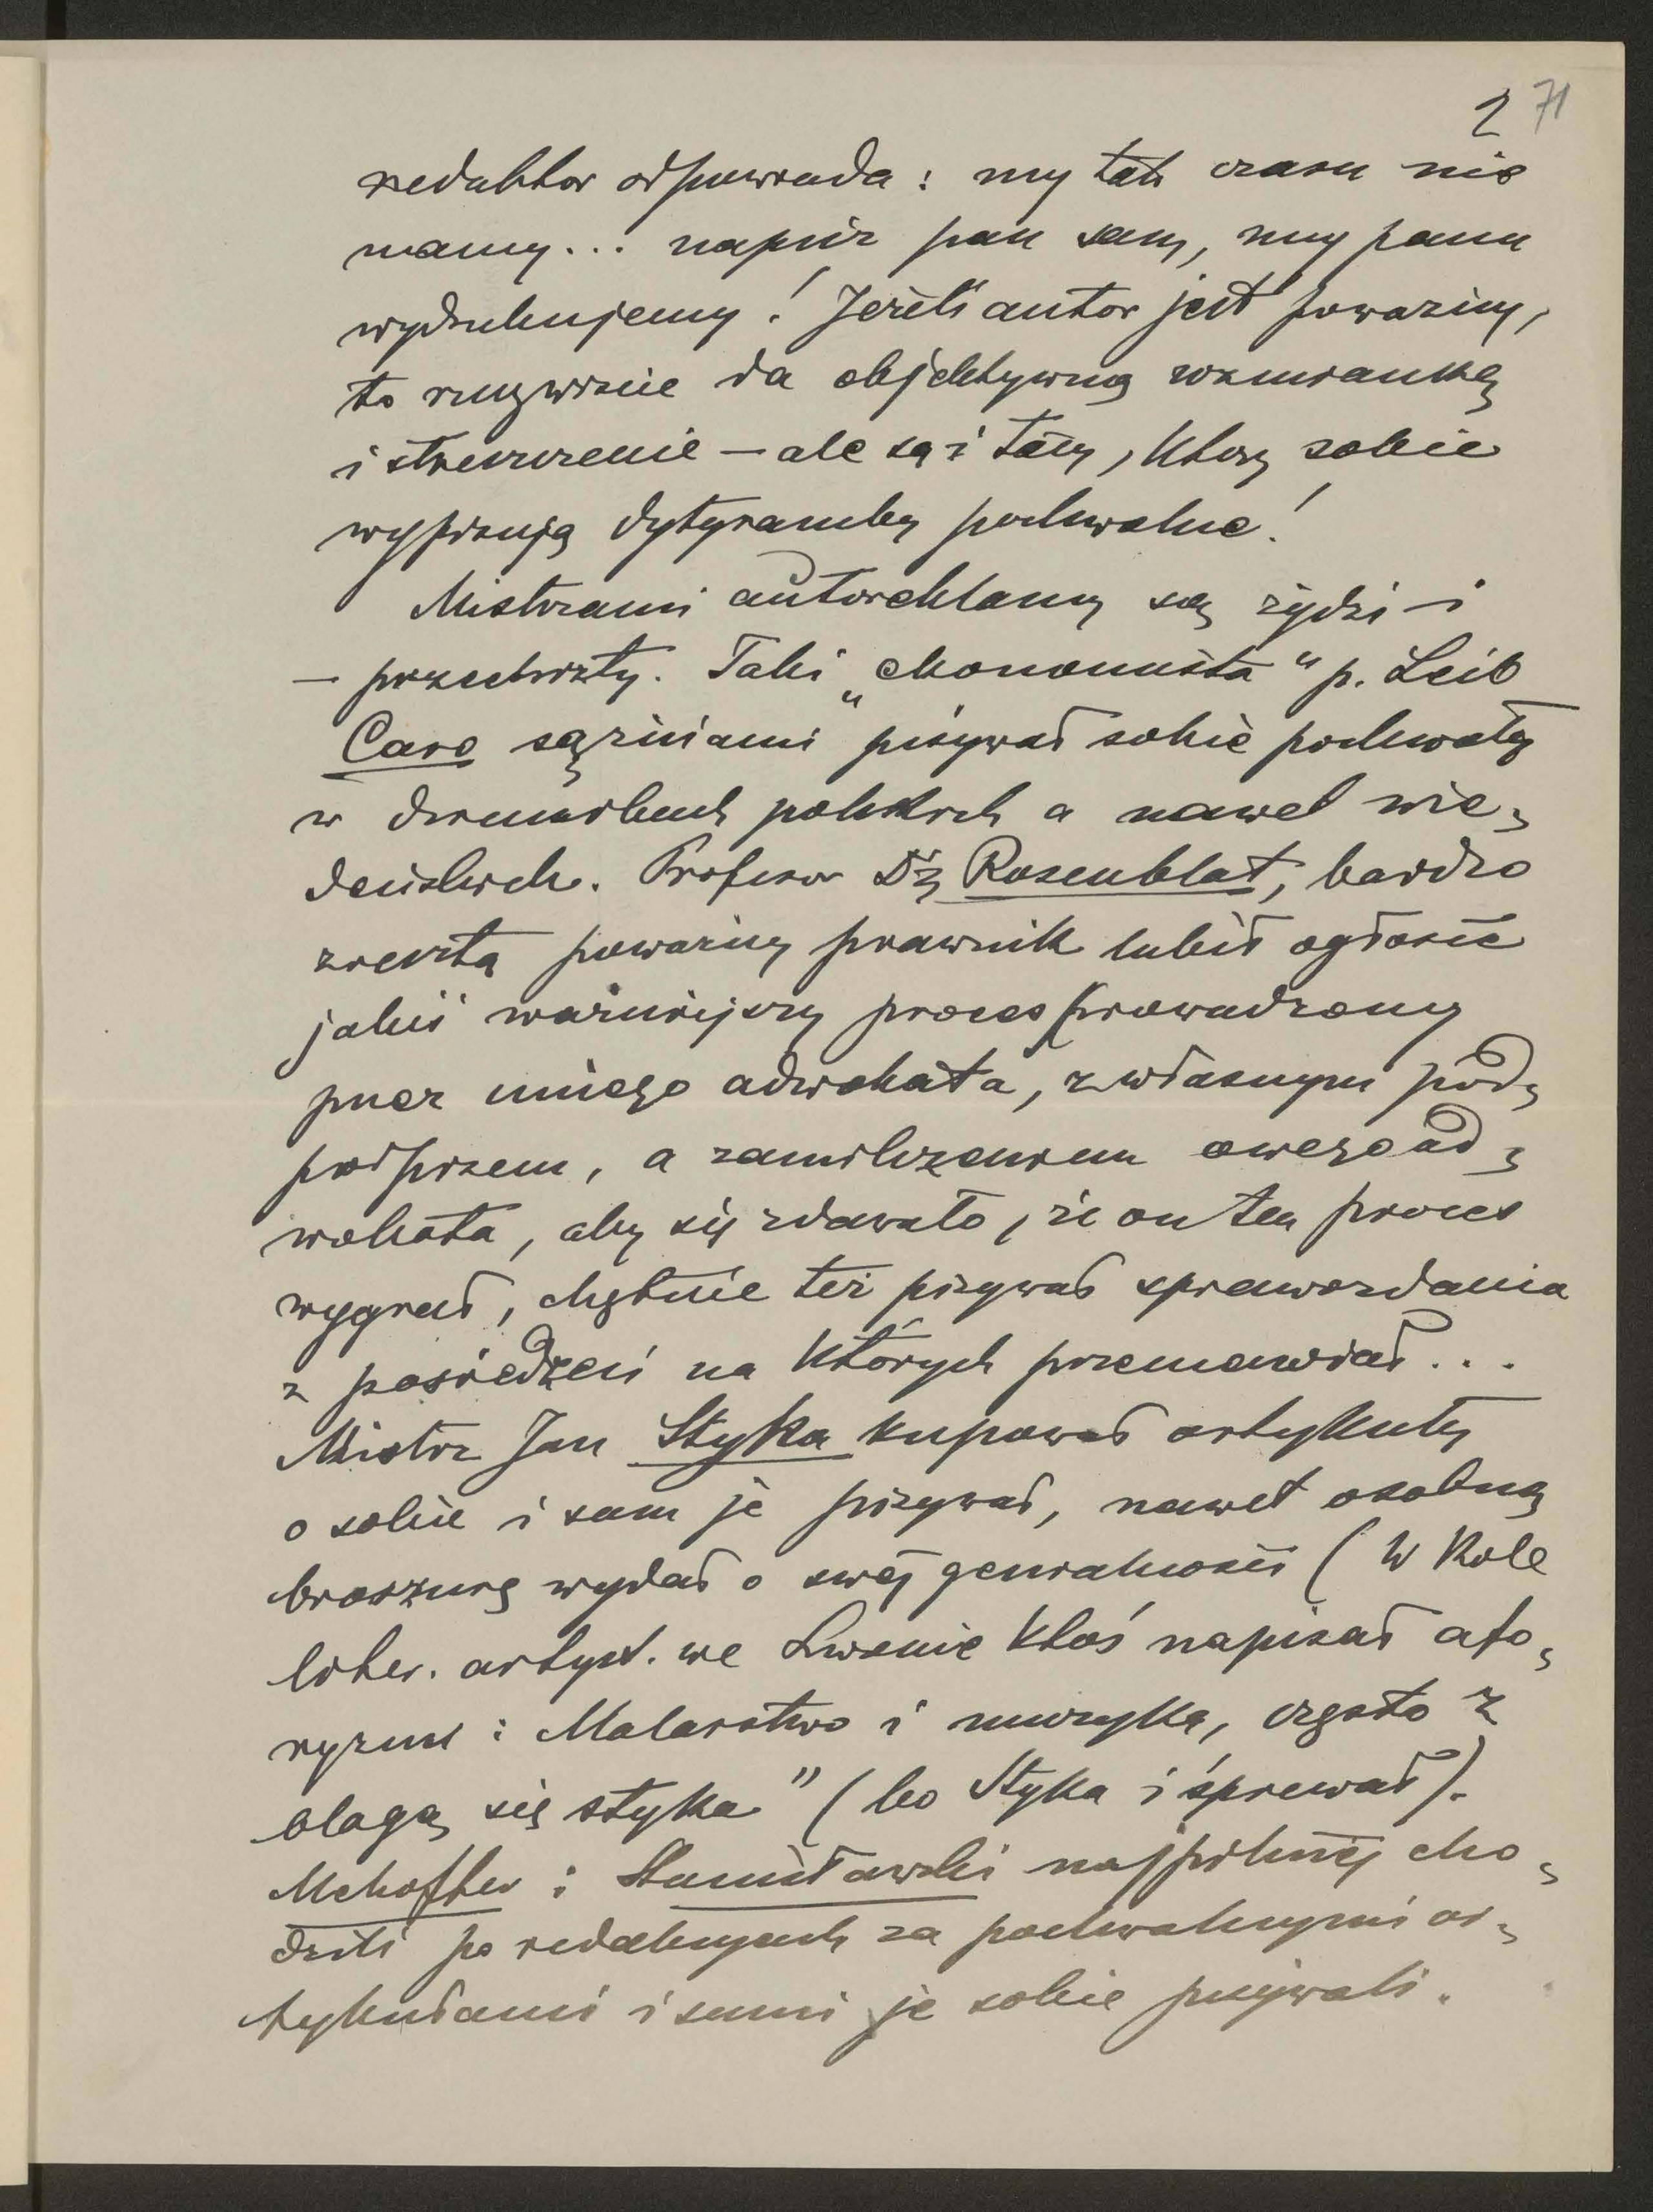 2 71
redaktor odpowiada: my tak czasu nie
mamy... napisz pan sam, my panu
wydrukujemy! Jeżeli autor jest poważny,
to rzeczywiście da objektywną wzmiankę
i streszczenie — ale są i tacy, którzy sobie
wypisują dytyramby pochwalne!
Mistrzami autoreklamy są żydzi i
— przechrzty. Taki „ekonomista" p. Leib
Caro sążniami pisywał sobie pochwały
w dziennikach polskich a nawet wie-
deńskich. Profesor Dr Rosenblat, bardzo
zresztą poważny prawnik lubił ogłosić
jakiś ważniejszy proces prowadzony
przez innego adwokata, z własnym pod-
podpisem, a zamilczeniem owego ad-
wokata, aby się zdawało, że on ten proces
wygrał, chętnie też pisywał sprawozdania
z posiedzeń na których przemawiał...
Mistrz Jan Styka kupował artykuły
o sobie i sam je pisywał, nawet osobną
broszurę wydał o swej genialności (W Kole
liter. artyst. we Lwowie ktoś napisał afo-
ryzm: Malarstwo i muzyka, często z
blagą się styka" (bo Styka i śpiewał).
Mehoffer i Stanisławski najpilniej cho-
dzili po redakcyach za pochwalnymi ar-
tykułami i sami je sobie pisywali.